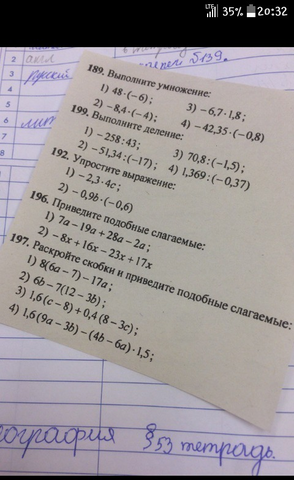 LTE 35% 20:32
2 англ
3 русский
4
5
6 лит
7
8
§139.
189. Выполните умножение:
1) 48·(−6); 3) −6,7·1,8;
2) −8,4·(−4); 4) −42,35·(−0,8)
199. Выполните деление:
1) −258:43; 3) 70,8:(−1,5);
2) −51,34:(−17); 4) 1,369:(−0,37)
192. Упростите выражение:
1) −2,3·4c;
2) −0,9b·(−0,6)
196. Приведите подобные слагаемые:
1) 7a−19a+28a−2a;
2) −8x+16x−23x+17x
197. Раскройте скобки и приведите подобные слагаемые:
1) 8(6a−7)−17a;
2) 6b−7(12−3b);
3) 1,6(c−8)+0,4(8−3c);
4) 1,6(9a−3b)−(4b−6a)·1,5;
ография §53 тетрадь.